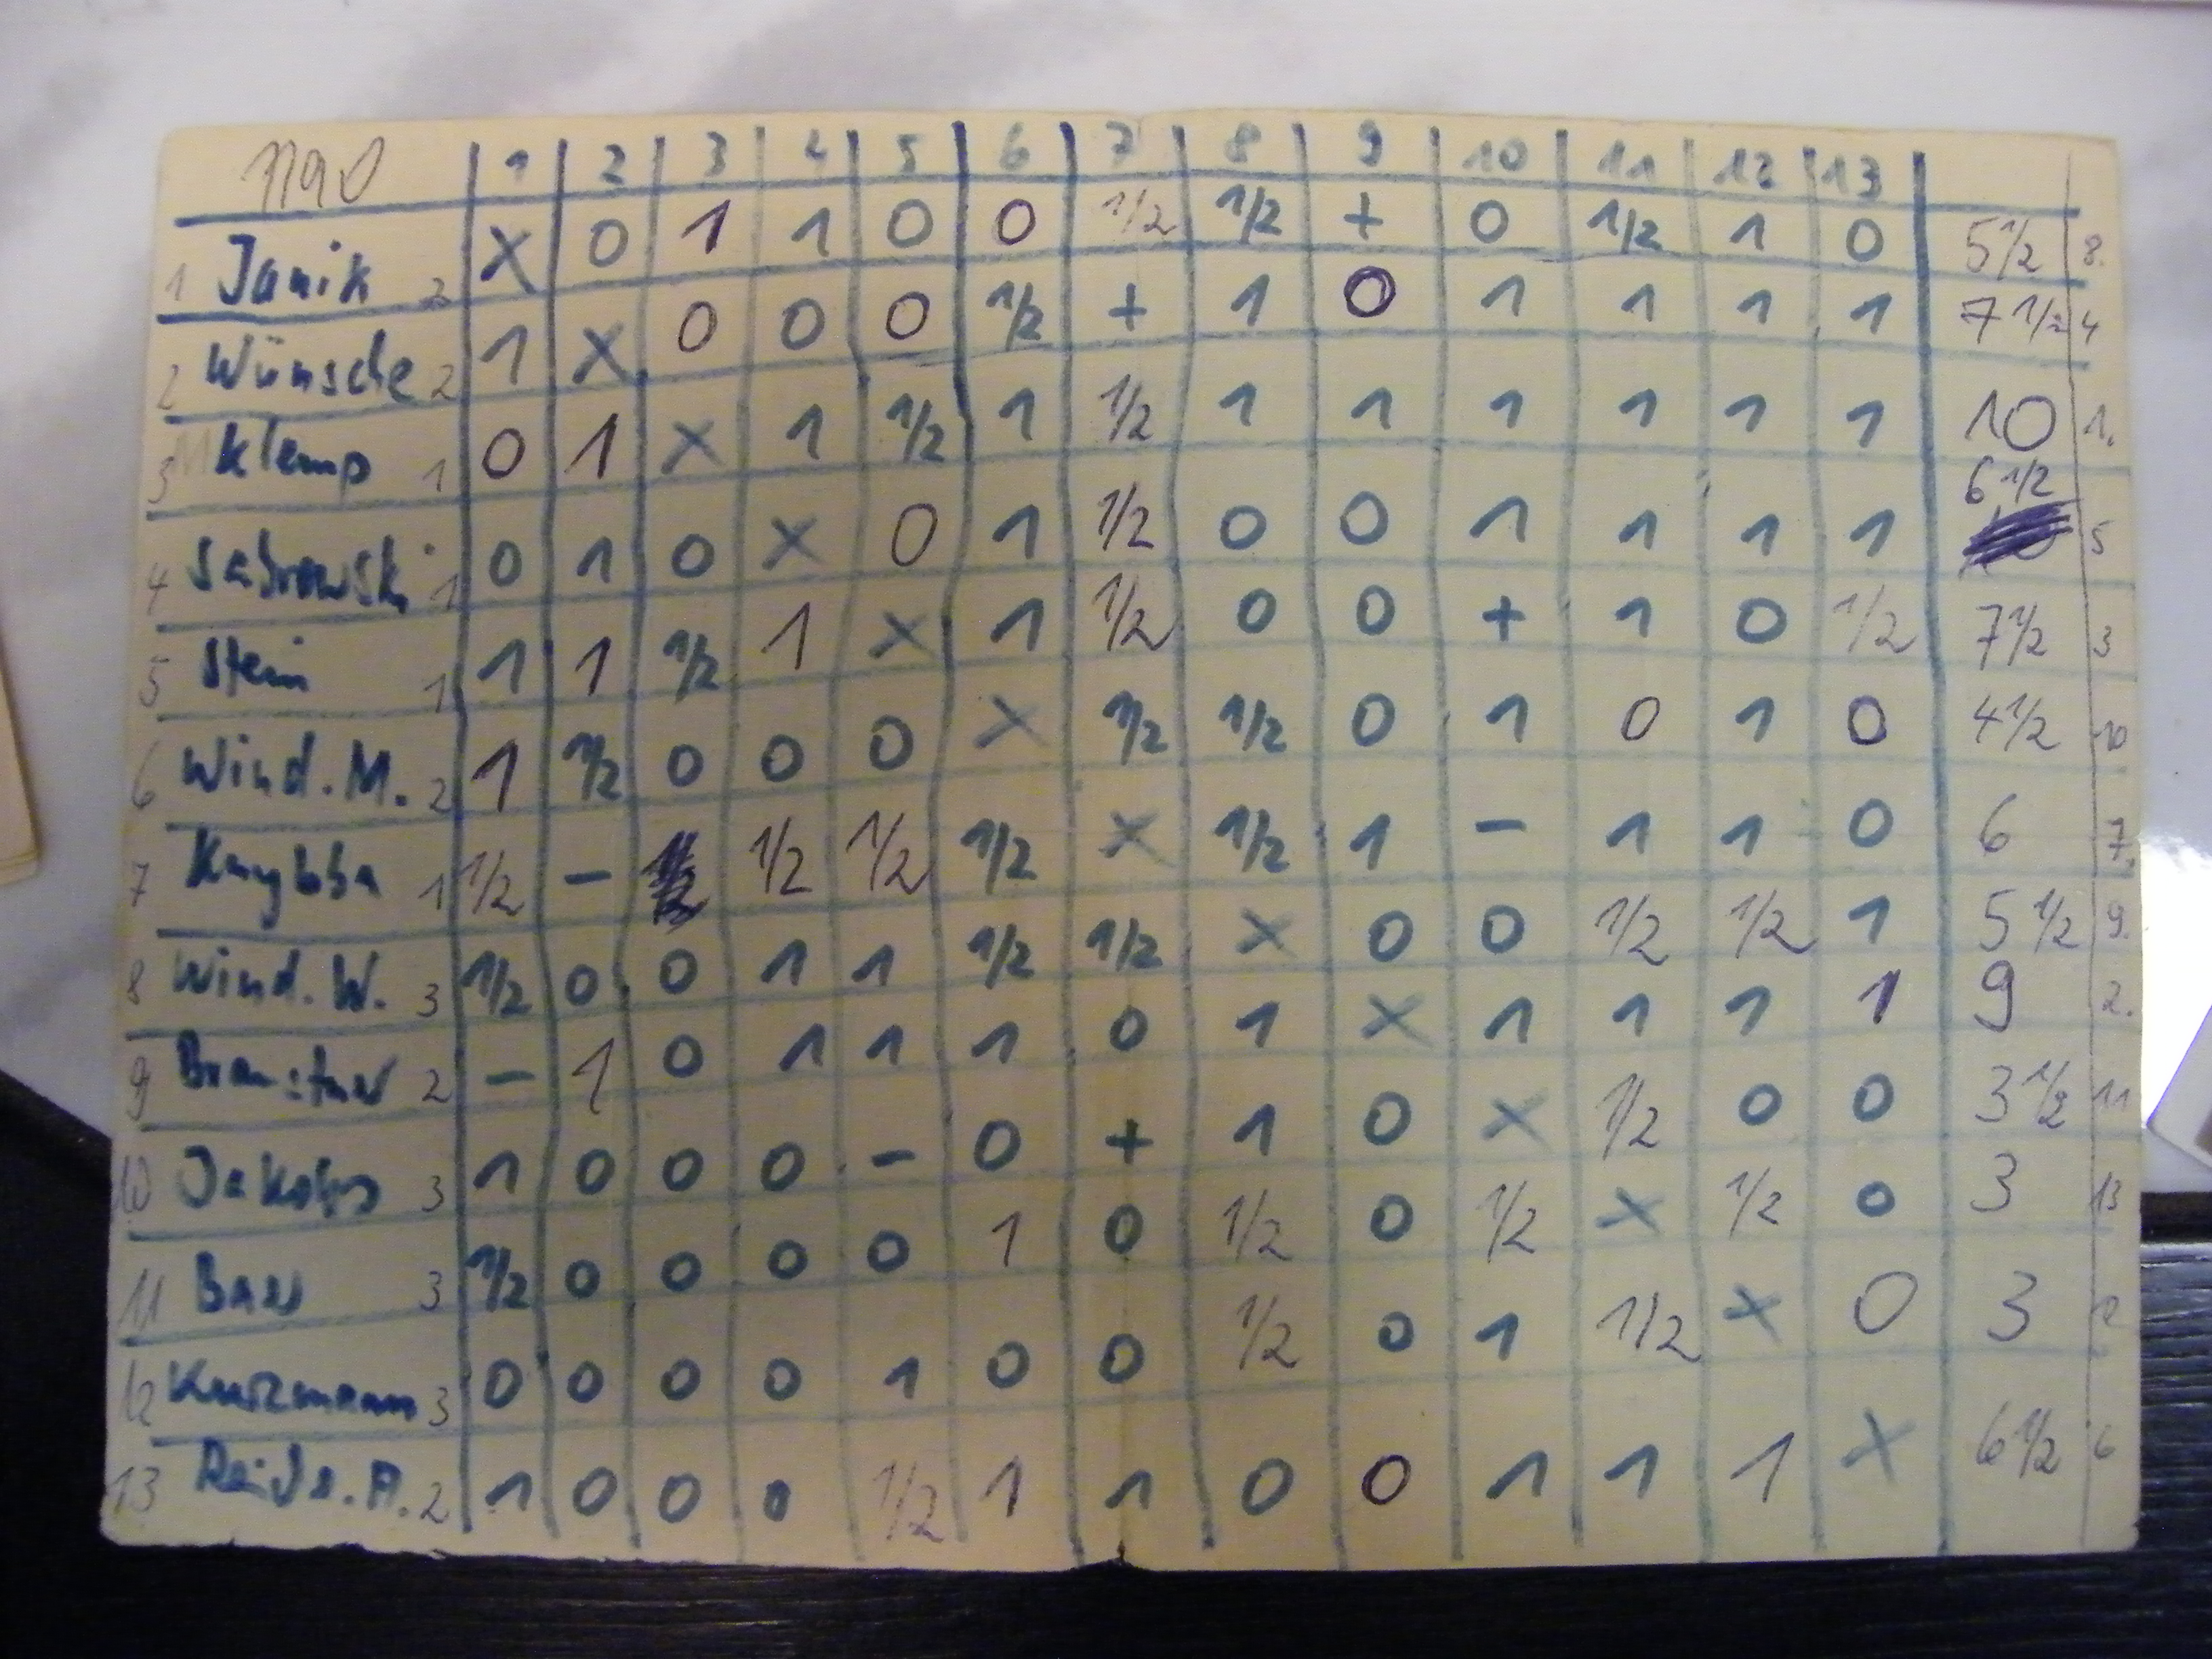 1 2 3 4 5 6 7 8 9 10 11 12 13
1 Janik 2 X 0 1 1 0 0 1/2 1/2 + 0 1/2 1 0 5 1/2 8.
2 Wünsche 2 1 X 0 0 0 1/2 + 1 0 1 1 1 1 7 1/2 4
3 Klemp 1 0 1 X 1 1/2 1 1/2 1 1 1 1 1 1 10 1.
4 Sabrowski 1 0 1 0 X 0 1 1/2 0 0 1 1 1 1 6 1/2 5
5 Stein 1 1 1 1/2 1 X 1 1/2 0 0 + 1 0 1/2 7 1/2 3
6 Wind. M. 2 1 1/2 0 0 0 X 1/2 1/2 0 1 0 1 0 4 1/2 10
7 Knybba 1 1/2 - 1/2 1/2 1/2 1/2 X 1/2 1 - 1 1 0 6 7.
8 Wind. W. 3 1/2 0 0 1 1 1/2 1/2 X 0 0 1/2 1/2 1 5 1/2 9.
9 2 - 1 0 1 1 1 0 1 X 1 1 1 1 9 2.
10 Jakobs 3 1 0 0 0 - 0 + 1 0 X 1/2 0 0 3 1/2 11
11 3 1/2 0 0 0 0 1 0 1/2 0 1/2 X 1/2 0 3 13
12 Kurzmann 3 0 0 0 0 1 0 0 1/2 0 1 1/2 X 0 3
13 2 1 0 0 0 1/2 1 1 0 0 1 1 1 X 6 1/2 6